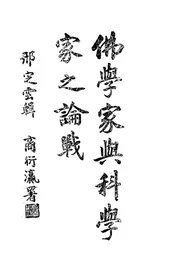 佛學家與科學
家之論戰
邢定雲輯
商衍瀛署